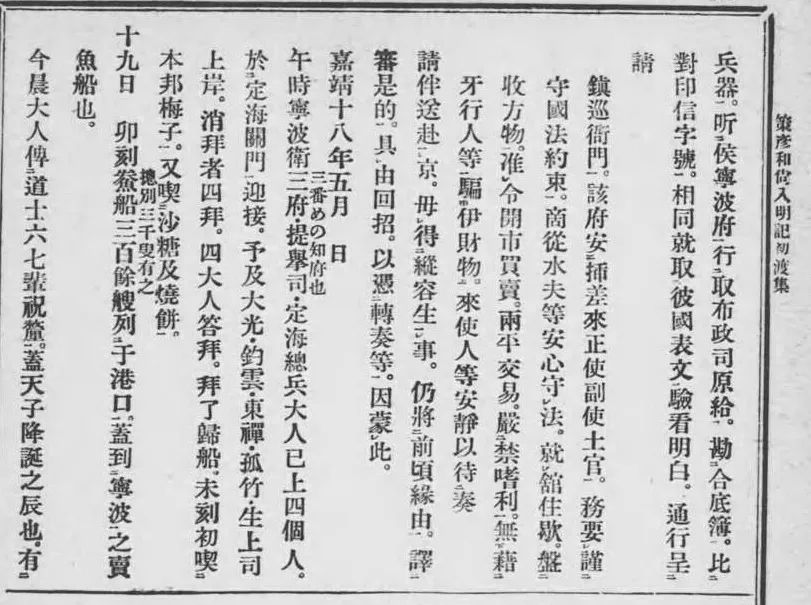 策彥和尙入明記初渡集
兵器。听侯寧波府行取布政司原給。勘合底簿。比
對印信字號。相同就取彼國表文驗看明白。通行呈
請
鎮巡衙門。該府安揷差來正使副使土官。務要謹
守國法約束。商從水夫等安心守法。就舘住歇。盤
收方物。准令開市買賣。兩平交易。嚴禁嗜利。無藉
牙行人等。騙伊財物。來使人等安靜以待奏
請伴送赴京。毋得縱容生事。仍將前項緣由。譯
審是的。具由回招。以憑轉奏等。因蒙此。
嘉靖十八年五月　日
三番めの知府也
午時寧波衛三府・提擧司・定海總兵大人已上四個人。
於定海關門迎接。予及大光・鈞雲・東禪・孤竹・生上司
上岸。消拜者四拜。四大人答拜。拜了歸船。未刻初喫
摠別三千叟有之
本邦梅子。又喫沙糖及燒餅。
十九日　卯刻鯗船三百餘艘列于港口。蓋到寧波之賣
魚船也。
今晨大人俾道士六七輩祝釐。蓋天子降誕之辰也。有